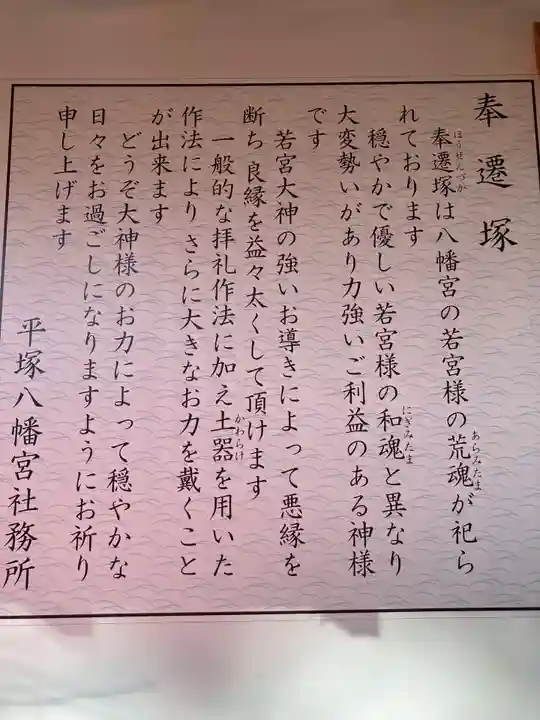 奉遷塚
奉遷塚は八幡宮の若宮様の荒魂が祀ら
ほうせんづか
あらみたま
れております
穏やかで優しい若宮様の和魂と異なり
にぎみたま
大変勢いがあり力強いご利益のある神様
です
若宮大神の強いお導きによって悪縁を
断ち 良縁を益々太くして頂けます
一般的な拝礼作法に加え土器を用いた
かわらけ
作法により さらに大きなお力を戴くこと
が出来ます
どうぞ大神様のお力によって穏やかな
日々をお過ごしになりますようにお祈り
申し上げます
平塚八幡宮社務所